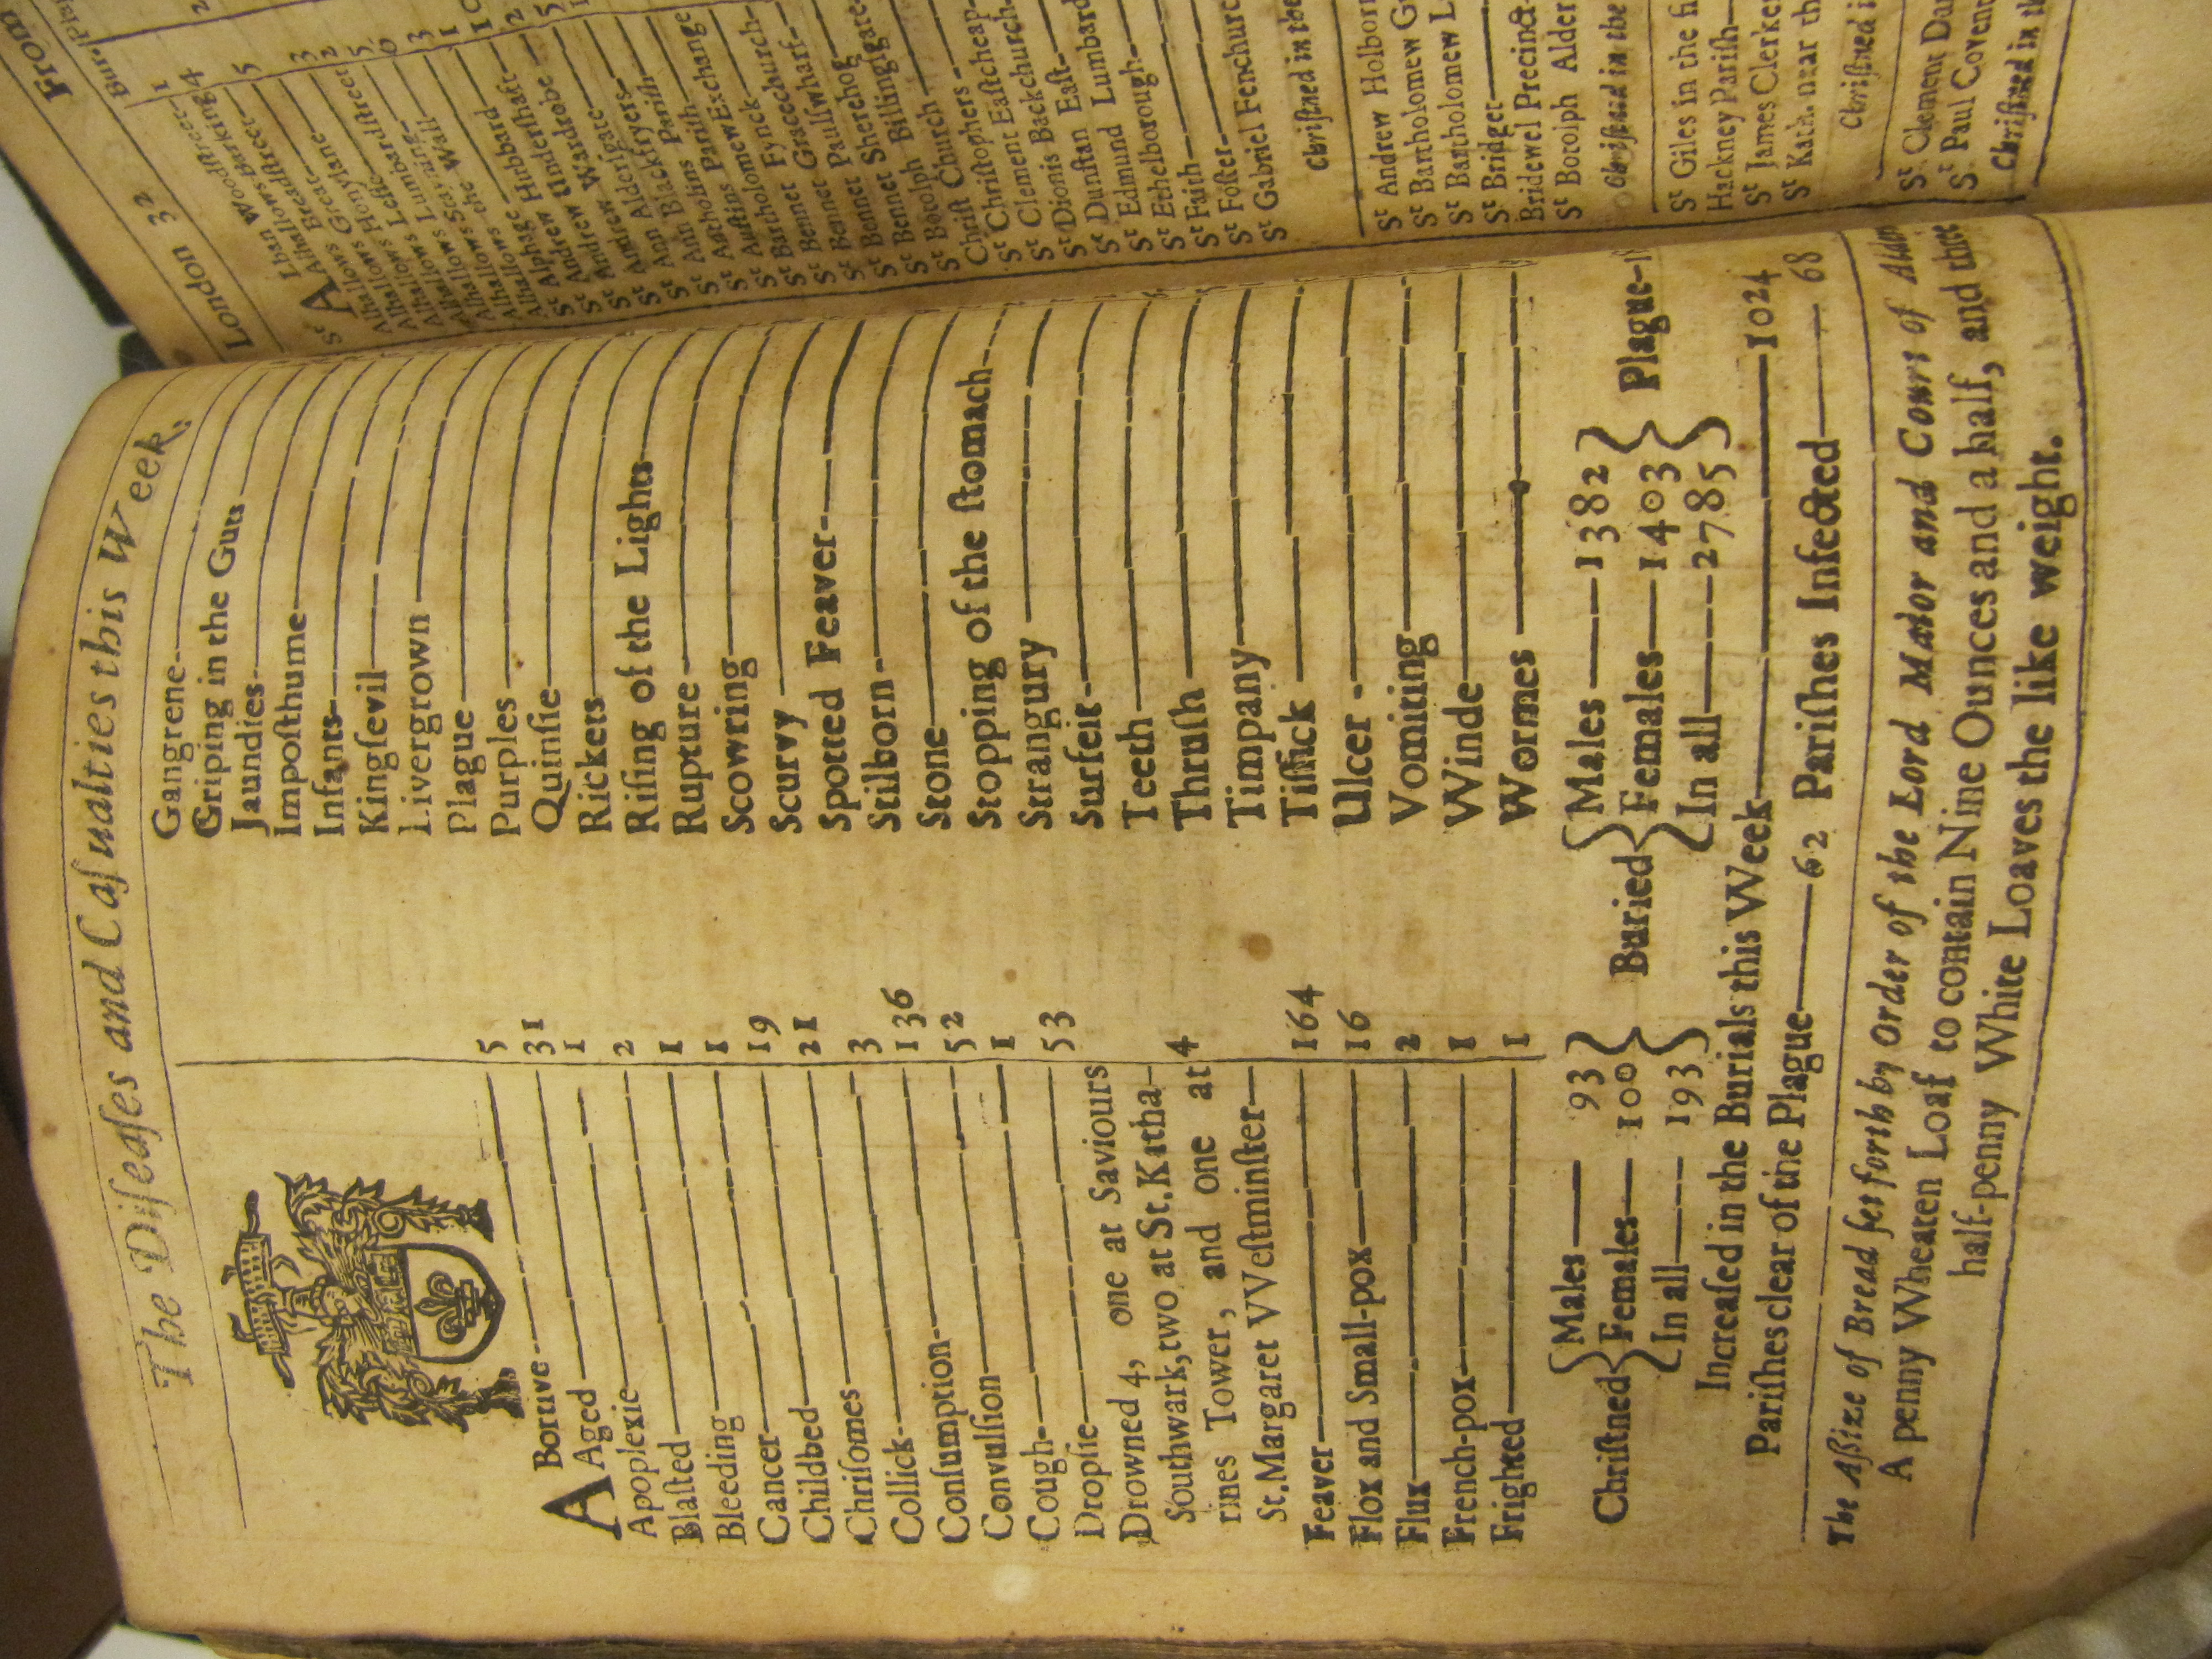 The Diſeaſes and Caſualties this Week.
ABortive 5
Aged 31
Apoplexie 1
Blaſted 2
Bleeding 1
Cancer 1
Childbed 19
Chriſomes 21
Collick 3
Conſumption 136
Convulſion 52
Cough 1
Dropſie 53
Drowned 4, one at Saviours
Southwark, two at St. Katha-
rines Tower, and one at
St. Margaret VVeſtminſter 4
Feaver 164
Flox and Small-pox 16
Flux 2
French-pox 1
Frighted 1
Gangrene
Griping in the Guts
Jaundies
Impoſthume
Infants
Kingſevil
Livergrown
Plague
Purples
Quinſie
Rickets
Riſing of the Lights
Rupture
Scowring
Scurvy
Spotted Feaver
Stilborn
Stone
Stopping of the ſtomach
Strangury
Surfeit
Teeth
Thruſh
Timpany
Tiſſick
Ulcer
Vomiting
Winde
Wormes
Chriſtned
Males 93
Females 100
In all 193
Buried
Males 1382
Females 1403
In all 2785
Plague
Increaſed in the Burials this Week 1024
Pariſhes clear of the Plague 62 Pariſhes Infected 68
The Aſsize of Bread ſet forth by Order of the Lord Maior and Court of
A penny Wheaten Loaf to contain Nine Ounces and a half, and three
half-penny White Loaves the like weight.
London 32 From
Bur.
St ALban Woodſtreet 1 1
Alhallows Barking 4
Alhallows Breadſtreet 5
Alhallows Great
Alhallows Honylane 3
Alhallows Leſſe 2
Alhallows Lumbardſtreet 5
Alhallows Staining 6
Alhallows the Wall 3
Alphage 1
St Andrew Hubbard
St Andrew Underſhaft
St Andrew Wardrobe
St Ann Alderſgate
St Ann Blackfryers
St Antholins Pariſh
St Auſtins Pariſh
St Bartholomew Exchange
St Bennet Fynck
St Bennet Gracechurch
St Bennet Paulſwharf
St Bennet Sherehog
St Botolph Billingſgate
Chriſt Church
St Chriſtophers
St Clement Eaſtcheap
St Dionis Backchurch
St Dunſtan Eaſt
St Edmund Lumbard
St Ethelborough
St Faith
St Foſter
St Gabriel Fenchurc
Chriſtned in the
St Andrew Holborn
St Bartholomew G
St Bartholomew L
St Bridget
Bridewel Precinct
St Botolph Alder
Chriſtned in the
St Giles in the fi
Hackney Pariſh
St James Clerke
St Kath. near th
Chriſtned i
St Clement Da
St Paul Covent
Chriſtned in th